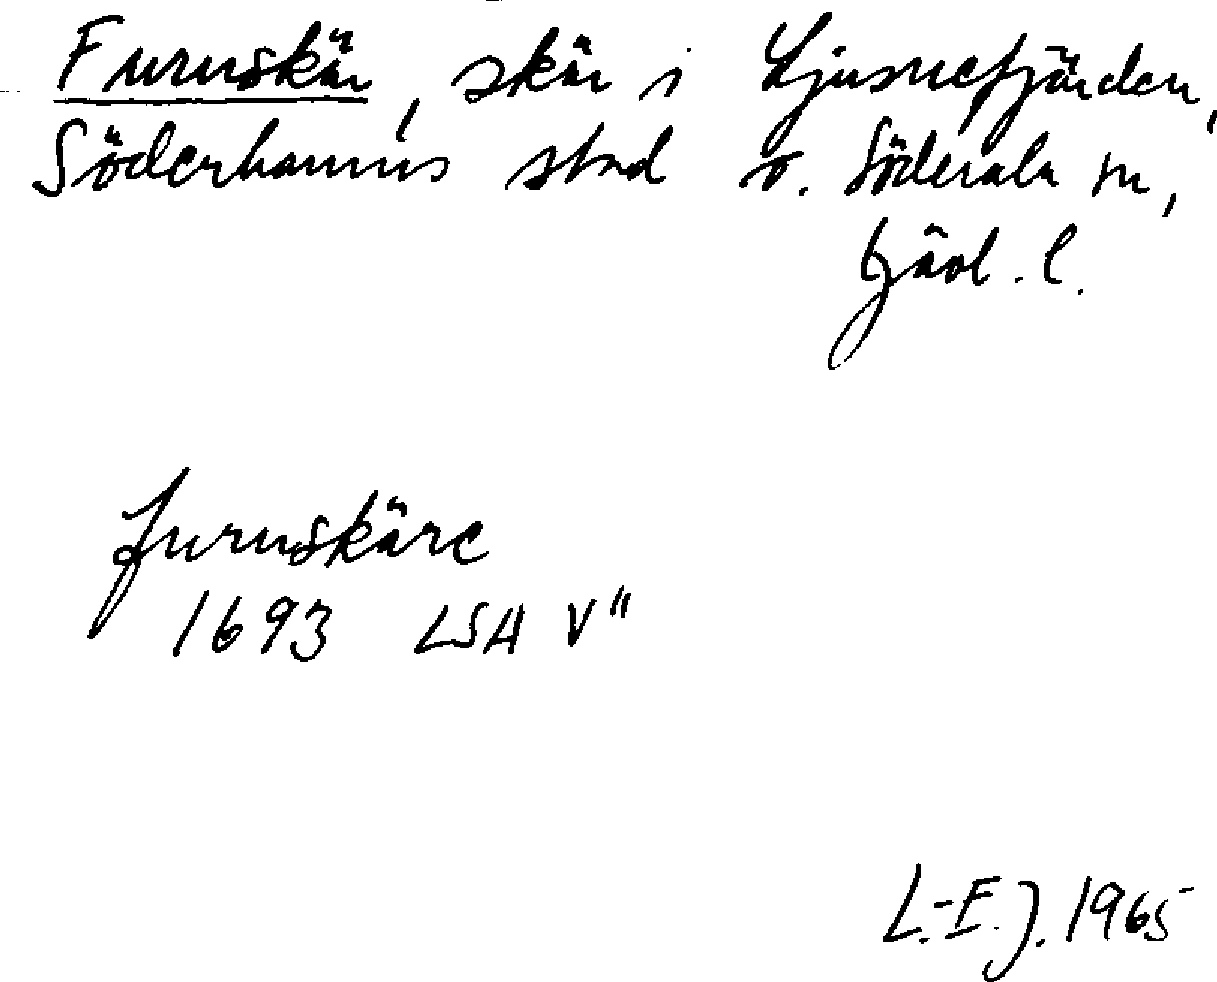 Furuskär, skär i Ljusnefjärden,
Söderhamns stad o. Söderala sn,
Gävl. l.
Furuskäre
1693 LSA V"
L.-E. J. 1965